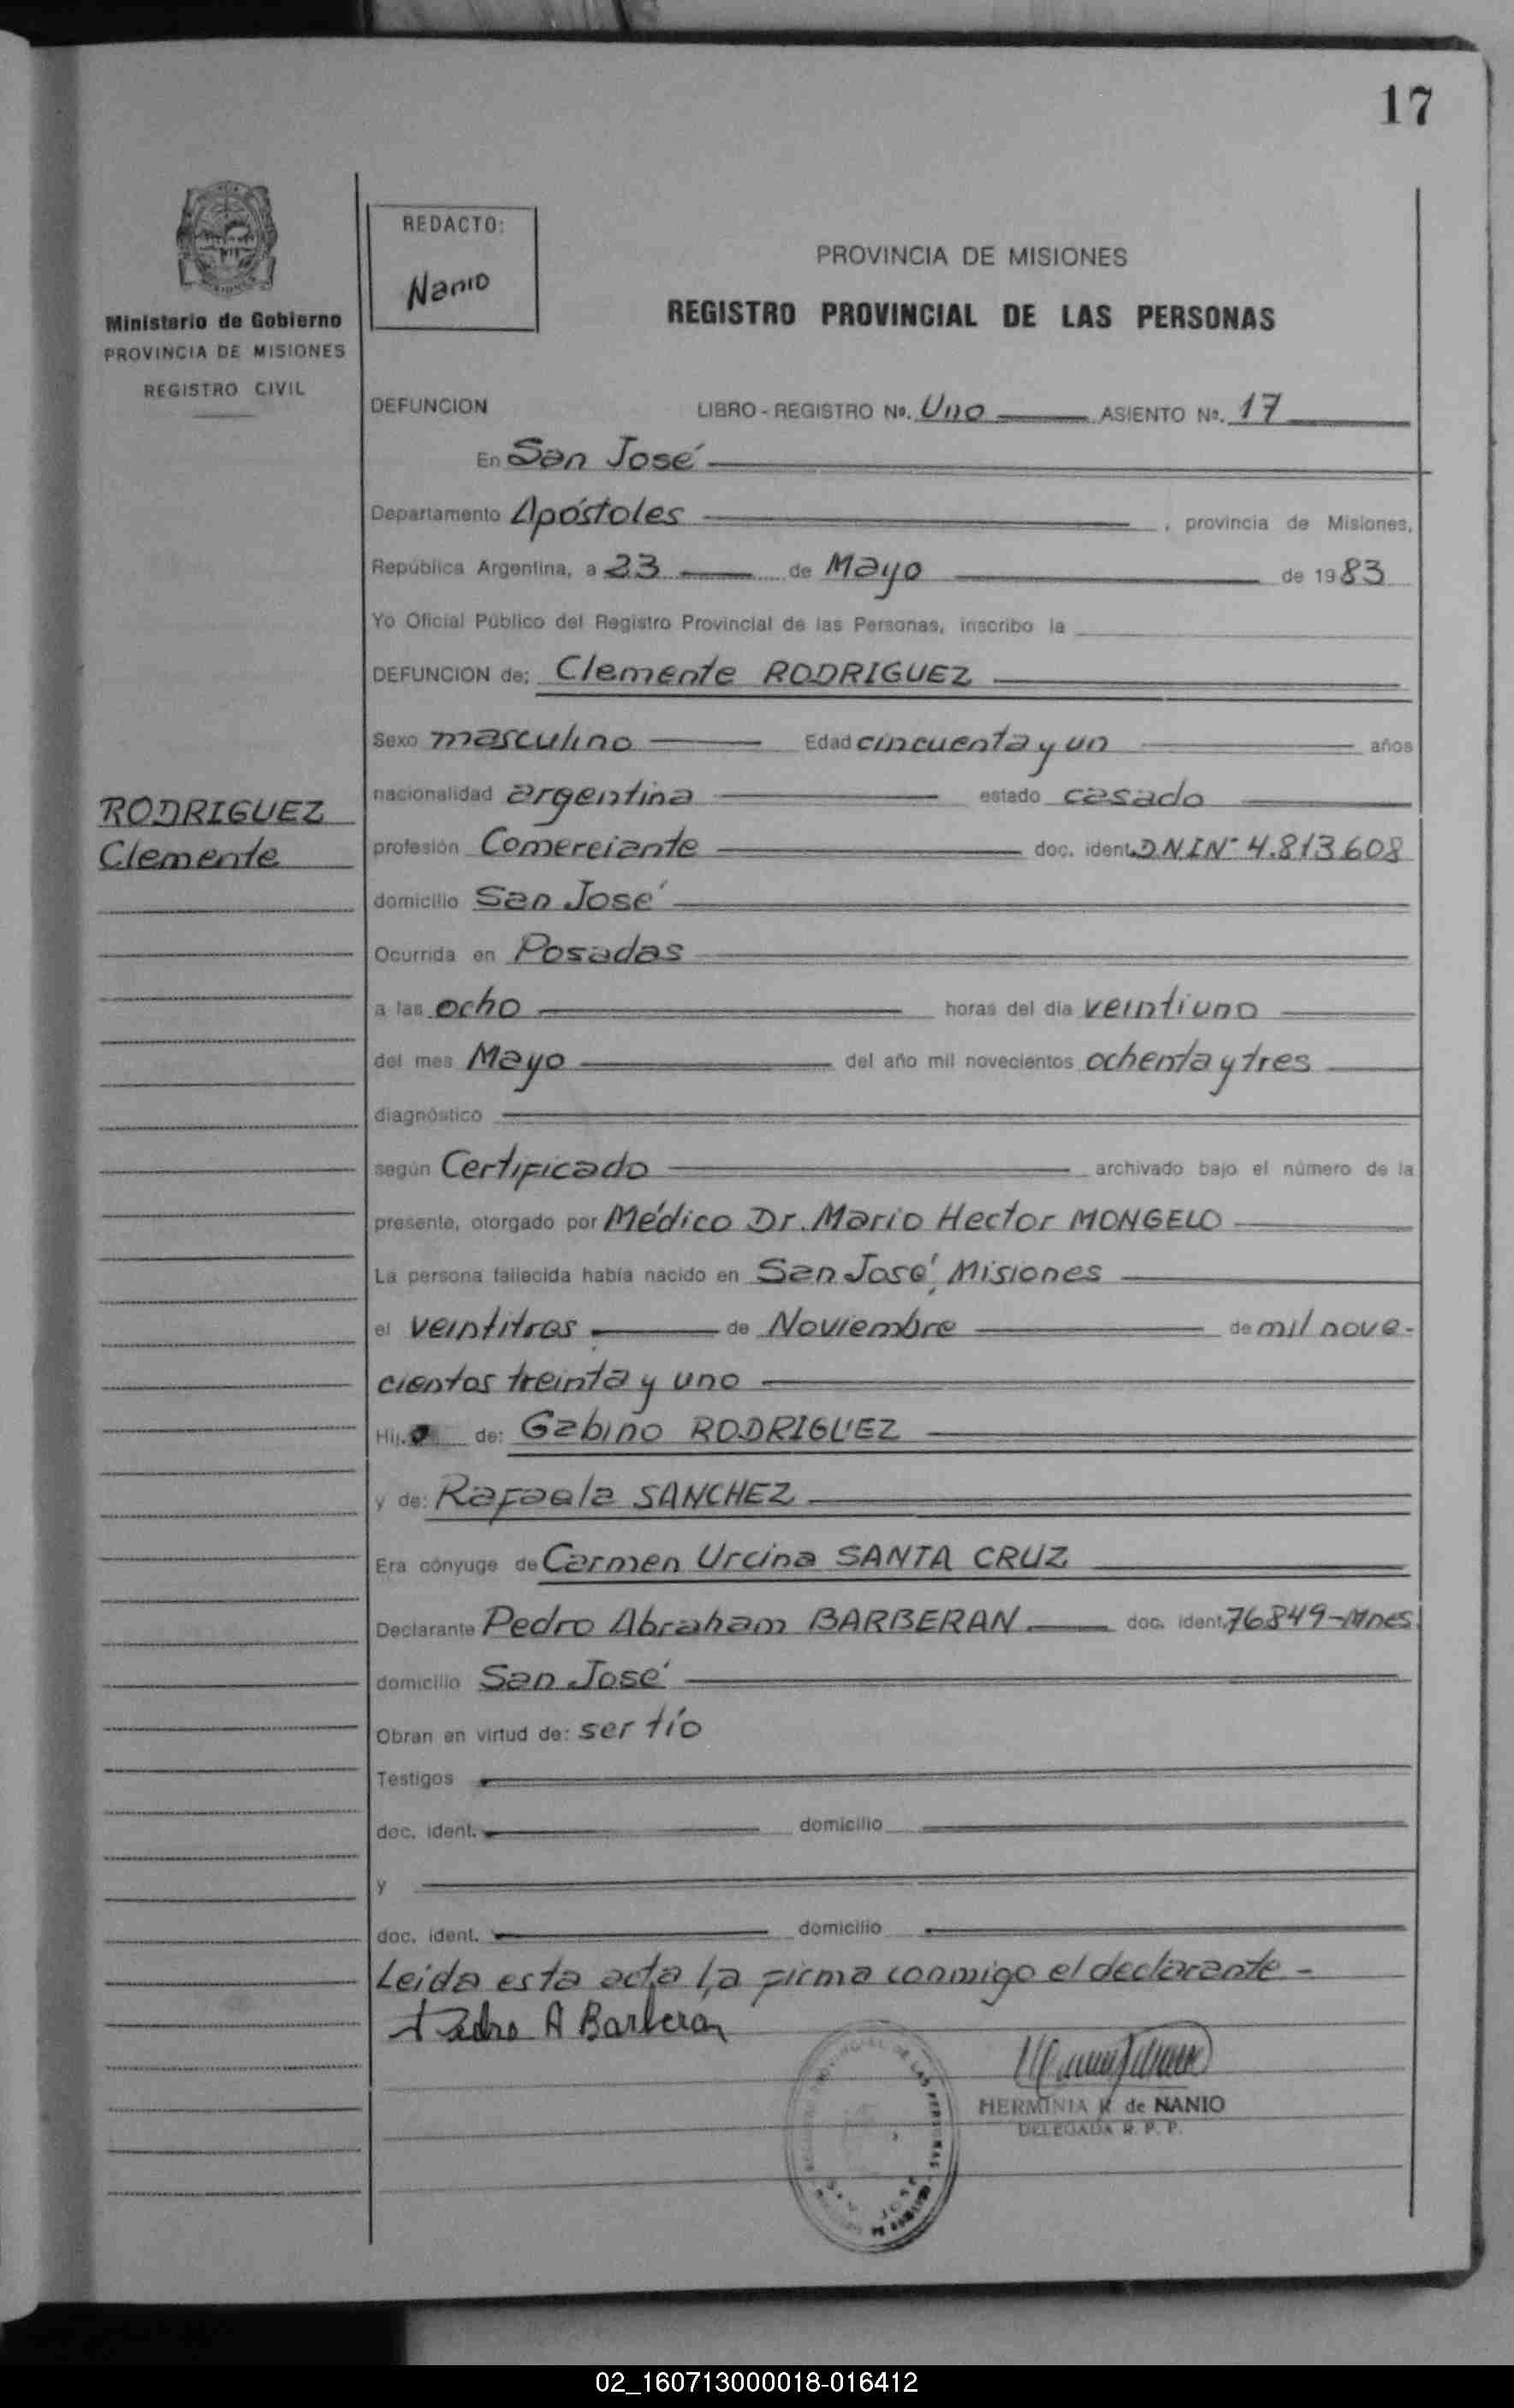 17
REDACTO:
Nanio
Ministerio de Gobierno
PROVINCIA DE MISIONES
REGISTRO CIVIL
PROVINCIA DE MISIONES
REGISTRO PROVINCIAL DE LAS PERSONAS
DEFUNCION LIBRO - REGISTRO Nº. Uno ASIENTO Nº. 17
En San José
Departamento Apóstoles , provincia de Misiones,
República Argentina, a 23 de Mayo de 1983
Yo Oficial Público del Registro Provincial de las Personas, inscribo la
DEFUNCION de: Clemente RODRIGUEZ
Sexo masculino Edad cincuenta y un años
RODRIGUEZ
Clemente
nacionalidad argentina estado casado
profesión Comerciante doc. ident. DNI Nº 4.813.608
domicilio San José
Ocurrida en Posadas
a las ocho horas del día veintiuno
del mes Mayo del año mil novecientos ochenta y tres
diagnóstico
según Certificado archivado bajo el número de la
presente, otorgado por Médico Dr. Mario Hector MONGELO
La persona fallecida había nacido en San José, Misiones
el veintitres de Noviembre de mil nove-
cientos treinta y uno
Hijo de: Gabino RODRIGUEZ
y de: Rafaela SANCHEZ
Era cónyuge de Carmen Urcina SANTA CRUZ
Declarante Pedro Abraham BARBERAN doc. ident. 76849-Mnes.
domicilio San José
Obran en virtud de: ser tío
Testigos
doc. ident. domicilio
y
doc. ident. domicilio
Leida esta acta la firma conmigo el declarante -
Pedro A Barberan
HERMINIA K de NANIO
DELEGADA R. P. P.
02_160713000018-016412